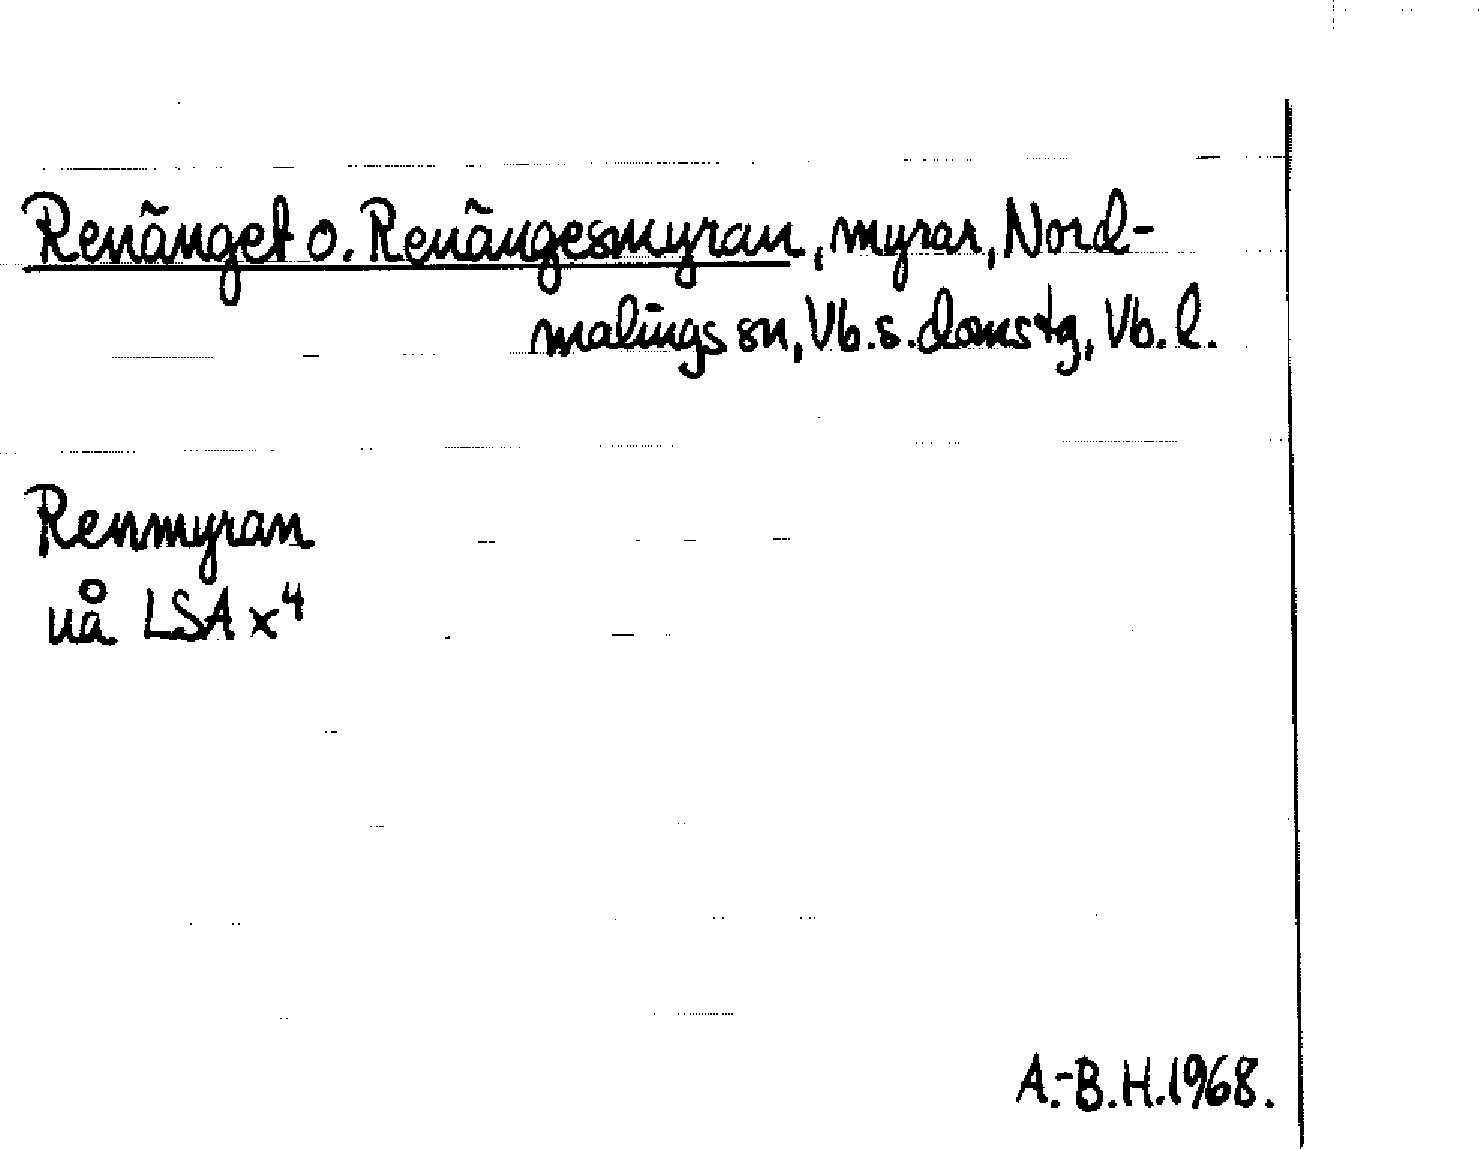 Renänget o. Renängesmyran, myrar, Nord-
malings sn, Vb.s.domstg, Vb.l.
Renmyran
uå LSA x⁴
A.-B.H.1968.